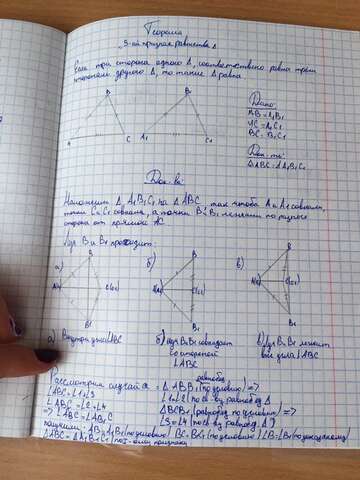 Теорема
3-ий признак равенства Δ
Если три стороны одного Δ, соответственно равна трём
сторонам другого Δ, то такие Δ равны.
B
B₁
A
C
A₁
C₁
Дано:
AB = A₁B₁
AC = A₁C₁
BC = B₁C₁
Док-ть:
ΔABC = ΔA₁B₁C₁
Док-во:
Наложим Δ A₁B₁C₁ на ΔABC так чтобы A и A₁ совпали,
точки C и C₁ совпали, а точки B и B₁ лежали по разные
стороны от прямой AC
Луч B и B₁ проходит:
а)
B
A(A₁)
C(C₁)
B₁
б)
B
A(A₁)
C(C₁)
B₁
в)
B
A(A₁)
C(C₁)
B₁
а) Внутри угла ABC
б) луч B₁B₁ совпадает
со стороной
∠ABC
в) луч B₁B₁ лежит
вне угла ∠ABC
Рассмотрим случай а
равноб
= Δ ABB₁ (по условию) =>
∠1=∠2 по св. ву равноб Δ
ΔBCB₁ (равноб по условию) =>
∠3=∠4 по св. ву равноб. Δ
∠ABC = ∠1+∠3
∠ABC = ∠2+∠4
=> ∠ABC = ∠AB₁C
получим: AB=A₁B₁ (по условию) BC=B₁C₁ (по условию) ∠B=∠B₁ (по доказанному)
ΔABC = ΔA₁B₁C₁ по I-ому признаку